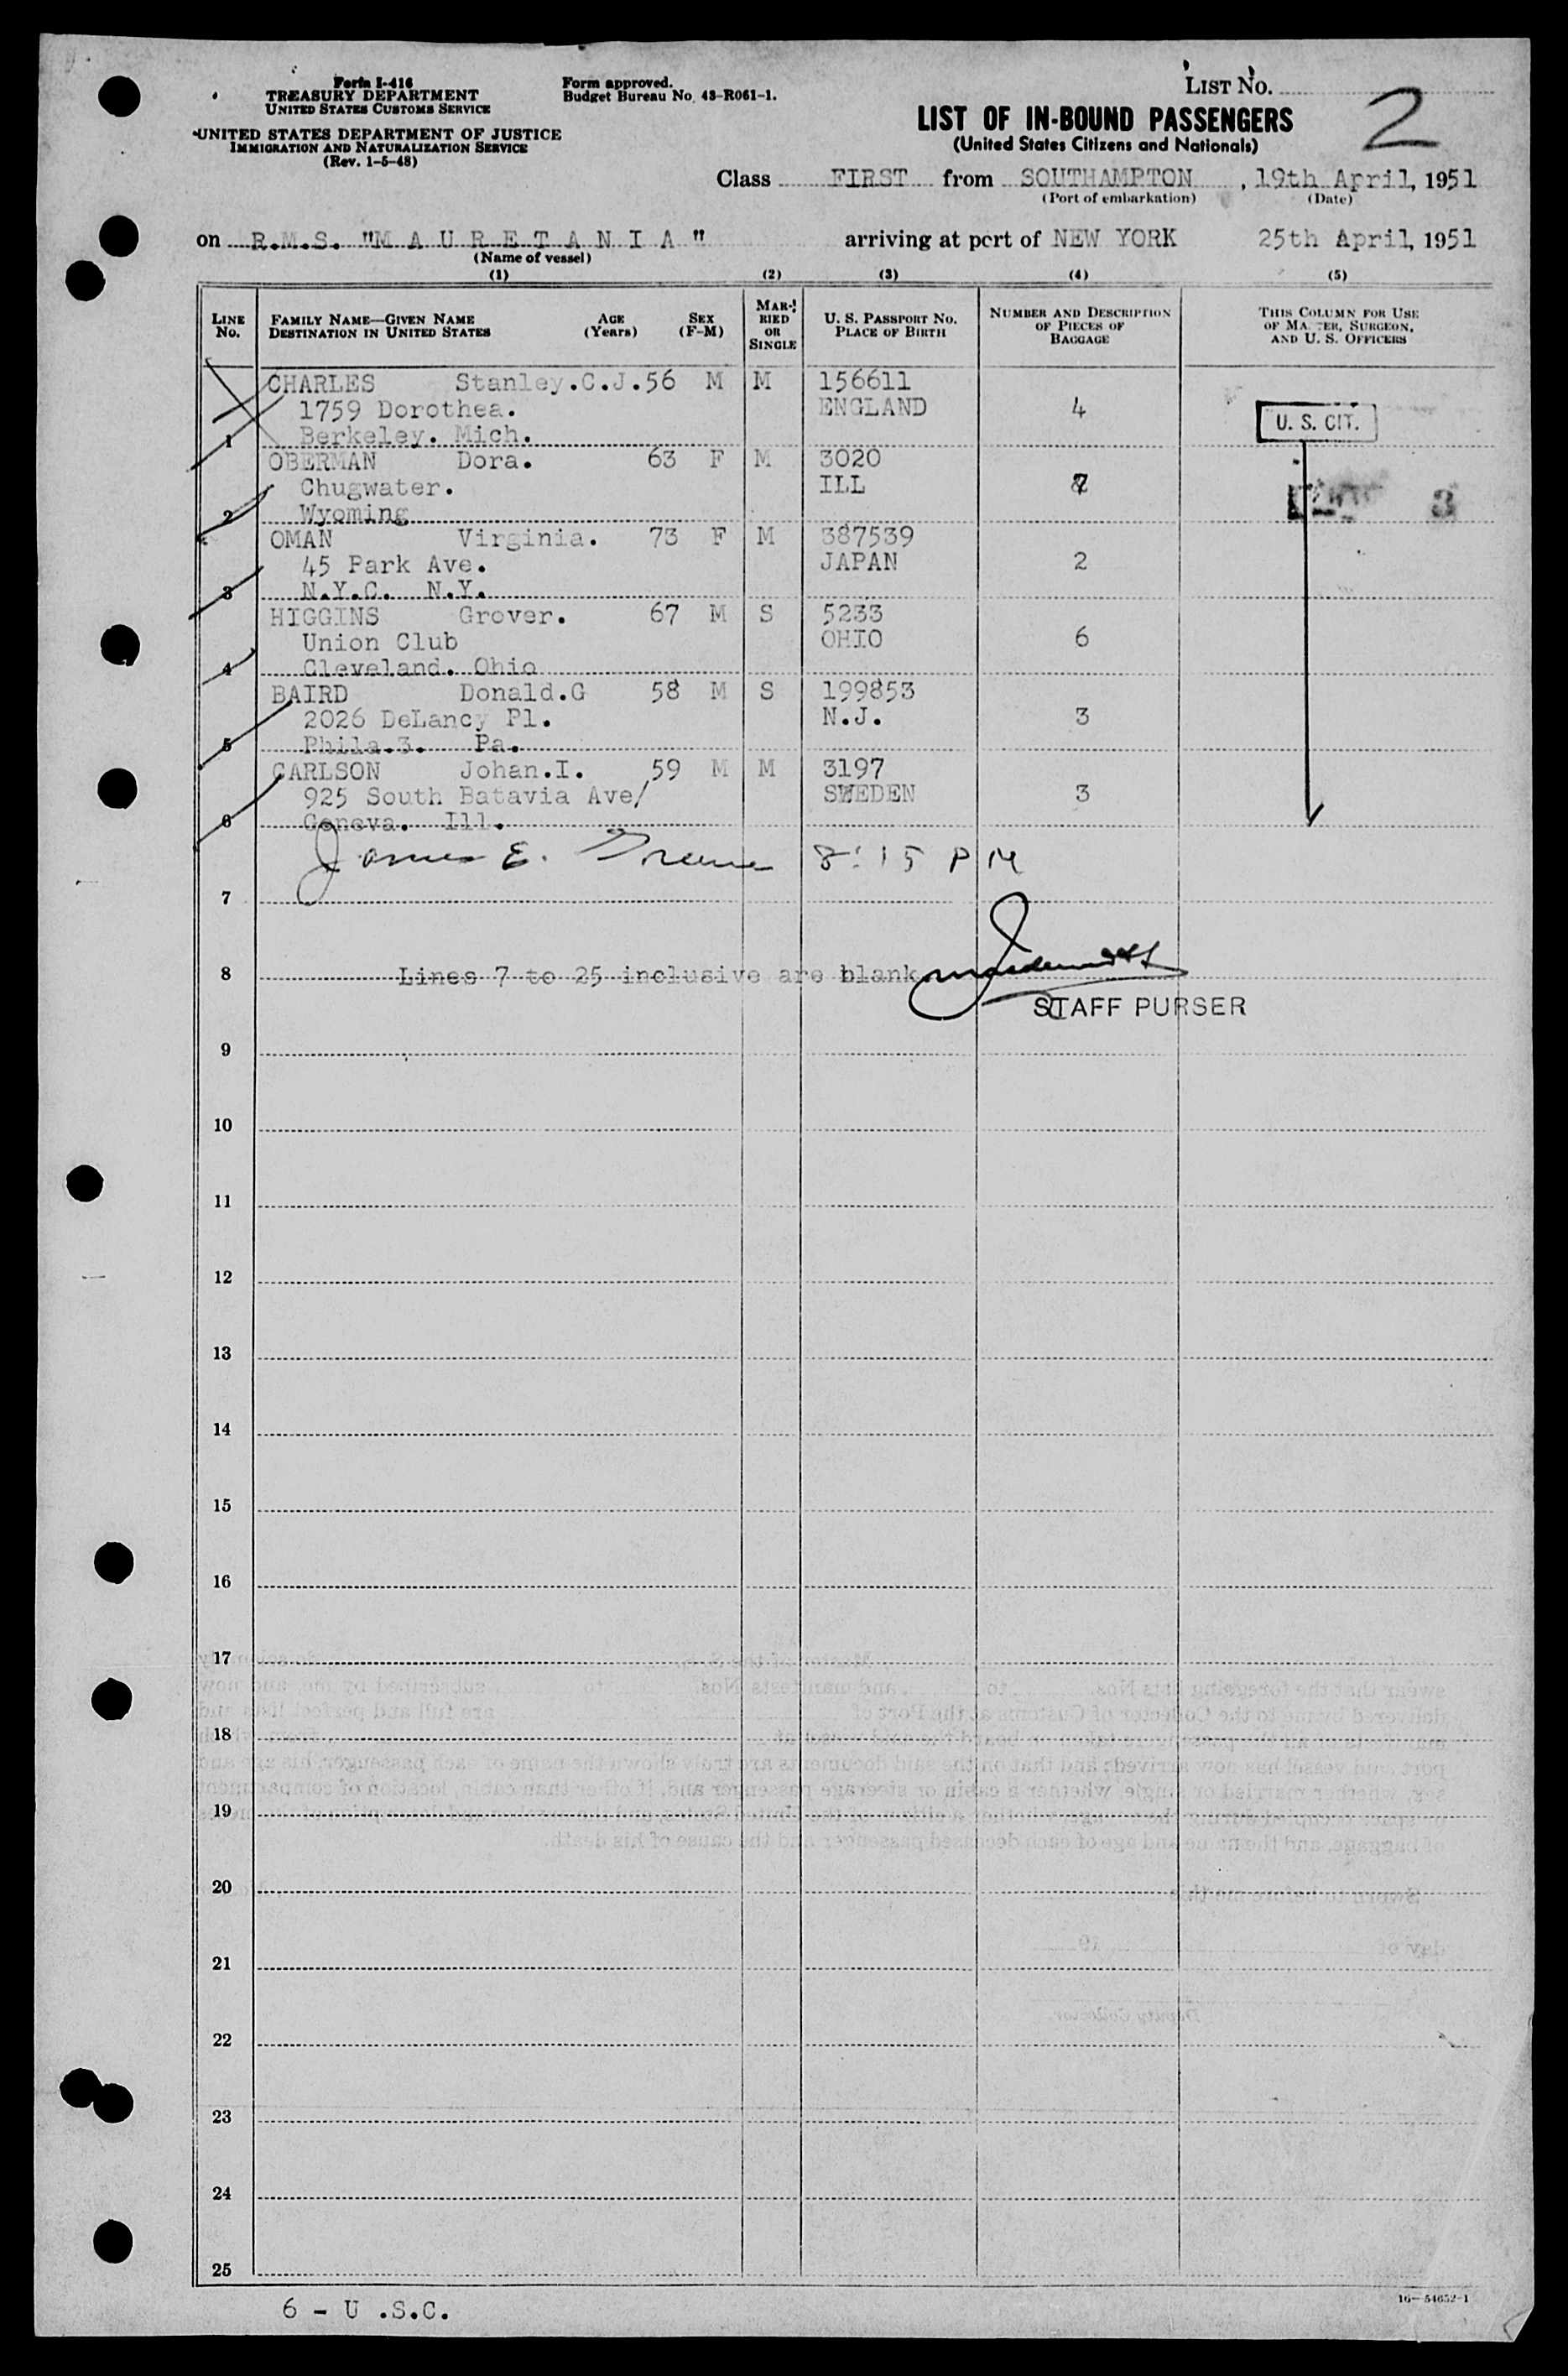 Form I-416
TREASURY DEPARTMENT
UNITED STATES CUSTOMS SERVICE
UNITED STATES DEPARTMENT OF JUSTICE
IMMIGRATION AND NATURALIZATION SERVICE
(Rev. 1-5-48)
Form approved.
Budget Bureau No. 43-R061-1.
LIST NO.
2
LIST OF IN-BOUND PASSENGERS
(United States Citizens and Nationals)
Class FIRST from SOUTHAMPTON, 19th April, 1951
(Port of embarkation) (Date)
on R.M.S. "M A U R E T A N I A" arriving at port of NEW YORK 25th April, 1951
(Name of vessel)
(1) (2) (3) (4) (5)
LINE NO. FAMILY NAME—GIVEN NAME DESTINATION IN UNITED STATES AGE (Years) SEX (F-M) MARRIED OR SINGLE U. S. PASSPORT NO. PLACE OF BIRTH NUMBER AND DESCRIPTION OF PIECES OF BAGGAGE THIS COLUMN FOR USE OF MASTER, SURGEON, AND U. S. OFFICERS
CHARLES Stanley.C.J.56 M M 156611
1759 Dorothea. ENGLAND 4 U. S. CIT.
1 Berkeley. Mich.
OBERMAN Dora. 63 F M 3020
Chugwater. ILL 7
2 Wyoming 3
OMAN Virginia. 73 F M 387539
45 Park Ave. JAPAN 2
3 N.Y.C. N.Y.
HIGGINS Grover. 67 M S 5233
Union Club OHIO 6
4 Cleveland. Ohio
BAIRD Donald.G 58 M S 199853
2026 DeLancy Pl. N.J. 3
5 Phila.3. Pa.
CARLSON Johan.I. 59 M M 3197
925 South Batavia Ave/ SWEDEN 3
6 Geneva. Ill.
James E. Greene 8:15 PM
7
8 Lines 7 to 25 inclusive are blank
STAFF PURSER
9
10
11
12
13
14
15
16
17
18
19
20
21
22
23
24
25
6 - U .S.C.
16—54652-1